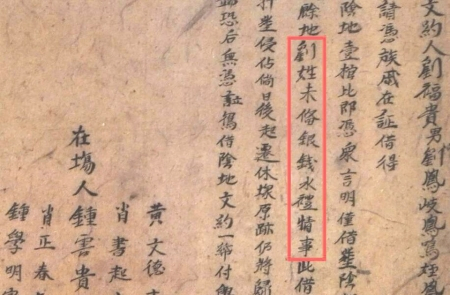 文約人劉福貴男劉鳳岐鳳鳴姪鳳
請憑族戚在証借得
陰地壹棺比即憑衆言明僅借塋陰
餘地劉姓未俻銀錢水禮情事此借
塋侵佔倘日後起遷休挨原跡仍將歸
恐后無憑証陰地文約一帋付與
黃文德
肖書起
在塲人鍾雲貴
肖正春
鍾學明